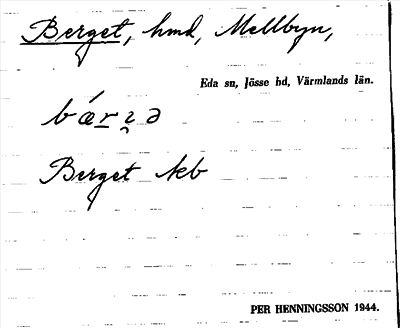 Berget, hmd, Mellbyn,
Eda sn, Jösse hd, Värmlands län.
Berget
PER HENNINGSSON 1944.